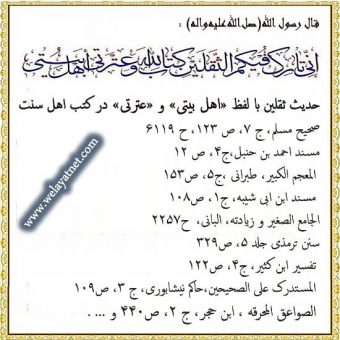 قال رسول الله(صلی‌الله‌علیه‌وآله) :
انی تارک فیکم الثقلین کتاب الله و عترتی اهل بیتی
حدیث ثقلین با لفظ «اهل بیتی» و «عترتی» در کتب اهل سنت
صحیح مسلم، ج ۷، ص ۱۲۳، ح ۶۱۱۹
مسند احمد بن حنبل،ج۴، ص ۱۲
المعجم الکبیر، طبرانی ،ج۵، ص۱۵۳
مسند ابن ابی شیبه، ج۱، ص۱۰۸
الجامع الصغیر و زیادته، البانی، ح۲۲۵۷
سنن ترمذی جلد ۵، ص۳۲۹
تفسیر ابن کثیر، ج۴، ص۱۲۲
المستدرک علی الصحیحین،حاکم نیشابوری، ج ۳، ص۱۰۹
الصواعق المحرقه ، ابن حجر، ج ۲، ص۴۴۰ و ... .
www.welayatnet.com